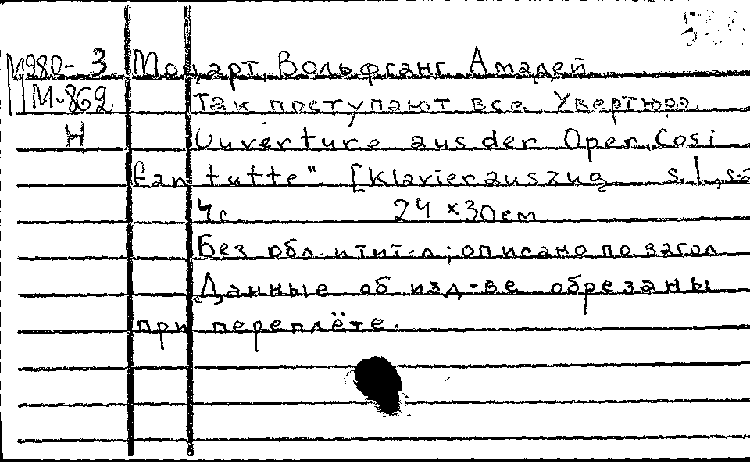 М980-3 Моцарт, Вольфганг Амадей
М-869 Так поступают все. Увертюра
Н Ouverture aus der Oper „Cosi
fan tutte" [Klavierauszug s.l., s.a
4с 24 х 30 см
Без обл. и тит. л; описано по загол
Данные об изд-ве обрезаны
при переплёте.